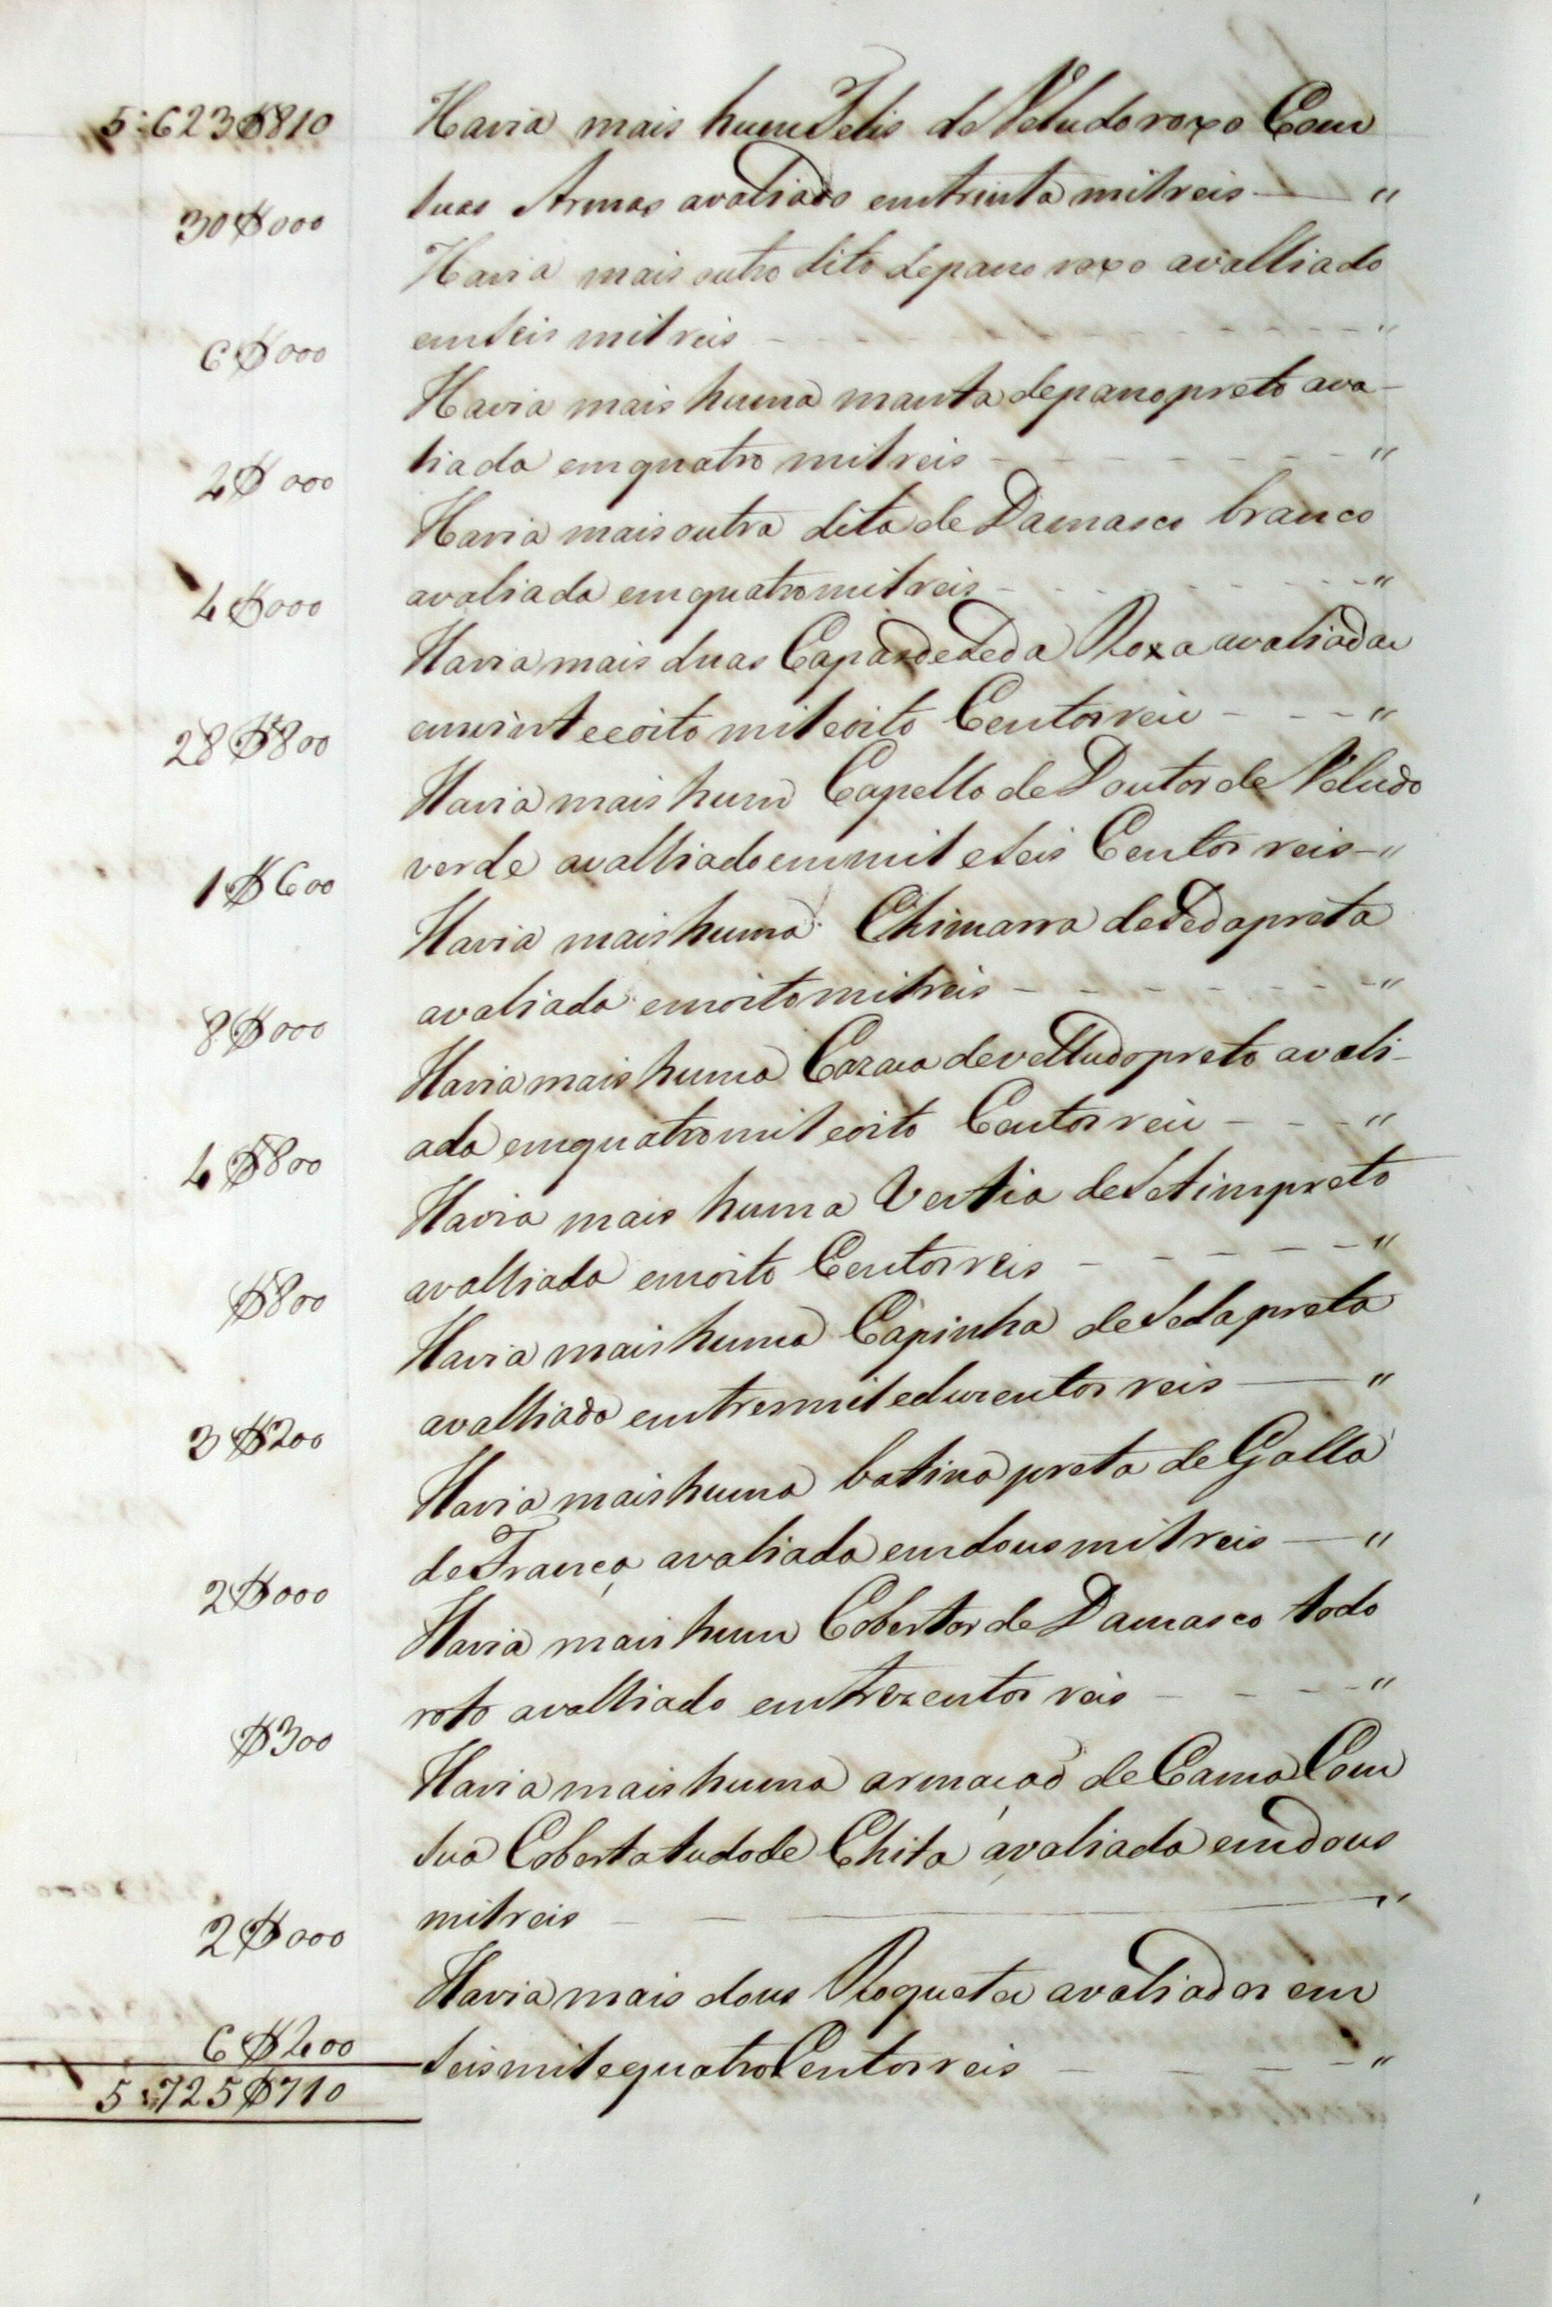 5:623$810 Havia mais hum Telis de Veludo roxo Com
30$000 suas Armas avaliado em trinta mil reis — "
Havia mais outro dito de pano roxo avalliado
6$000 em seis mil reis - - - "
Havia mais huma manta de pano preto ava-
4$000 liada em quatro mil reis - - - "
Havia mais outra dita de Damasco branco
4$000 avaliada em quatro mil reis - - - "
Havia mais duas Capas de Seda Roxa avaliadas
28$800 em vinte e oito mil e oito Centos reis - - - "
Havia mais hum Capello de Doutor de Veludo
1$600 verde avalliado em mil e seis Centos reis - "
Havia mais huma Chimarra de Seda preta
8$000 avaliada em oito mil reis - - - "
Havia mais huma Cazaca de velludo preto avali-
4$800 ada em quatro mil e oito Centos reis - - - "
Havia mais huma Vestia de Setim preto
$800 avalliada em oito Centos reis - - - "
Havia mais huma Capinha de Seda preta
3$200 avalliada em tres mil e duzentos reis — "
Havia mais huma batina preta de Galla
2$000 de França avaliada em dous mil reis — "
Havia mais hum Cobertor de Damasco todo
$300 roto avalliado em trezentos reis - - - "
Havia mais huma armação de Cama Com
sua Coberta tudo de Chita avaliada em dous
2$000 mil reis — "
Havia mais dous Roquetes avaliados em
6$400 seis mil e quatro Centos reis - - - "
5:725$710